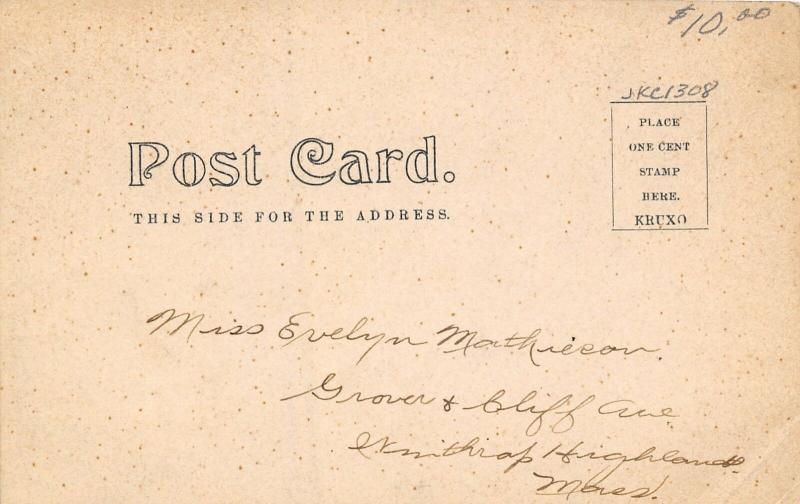 $10.00
JKC1308
PLACE
ONE CENT
STAMP
HERE.
KRUXO
Post Card.
THIS SIDE FOR THE ADDRESS.
Miss Evelyn Mathieson.
Grover & Cliff Ave
Winthrop Highlands.
Mass.